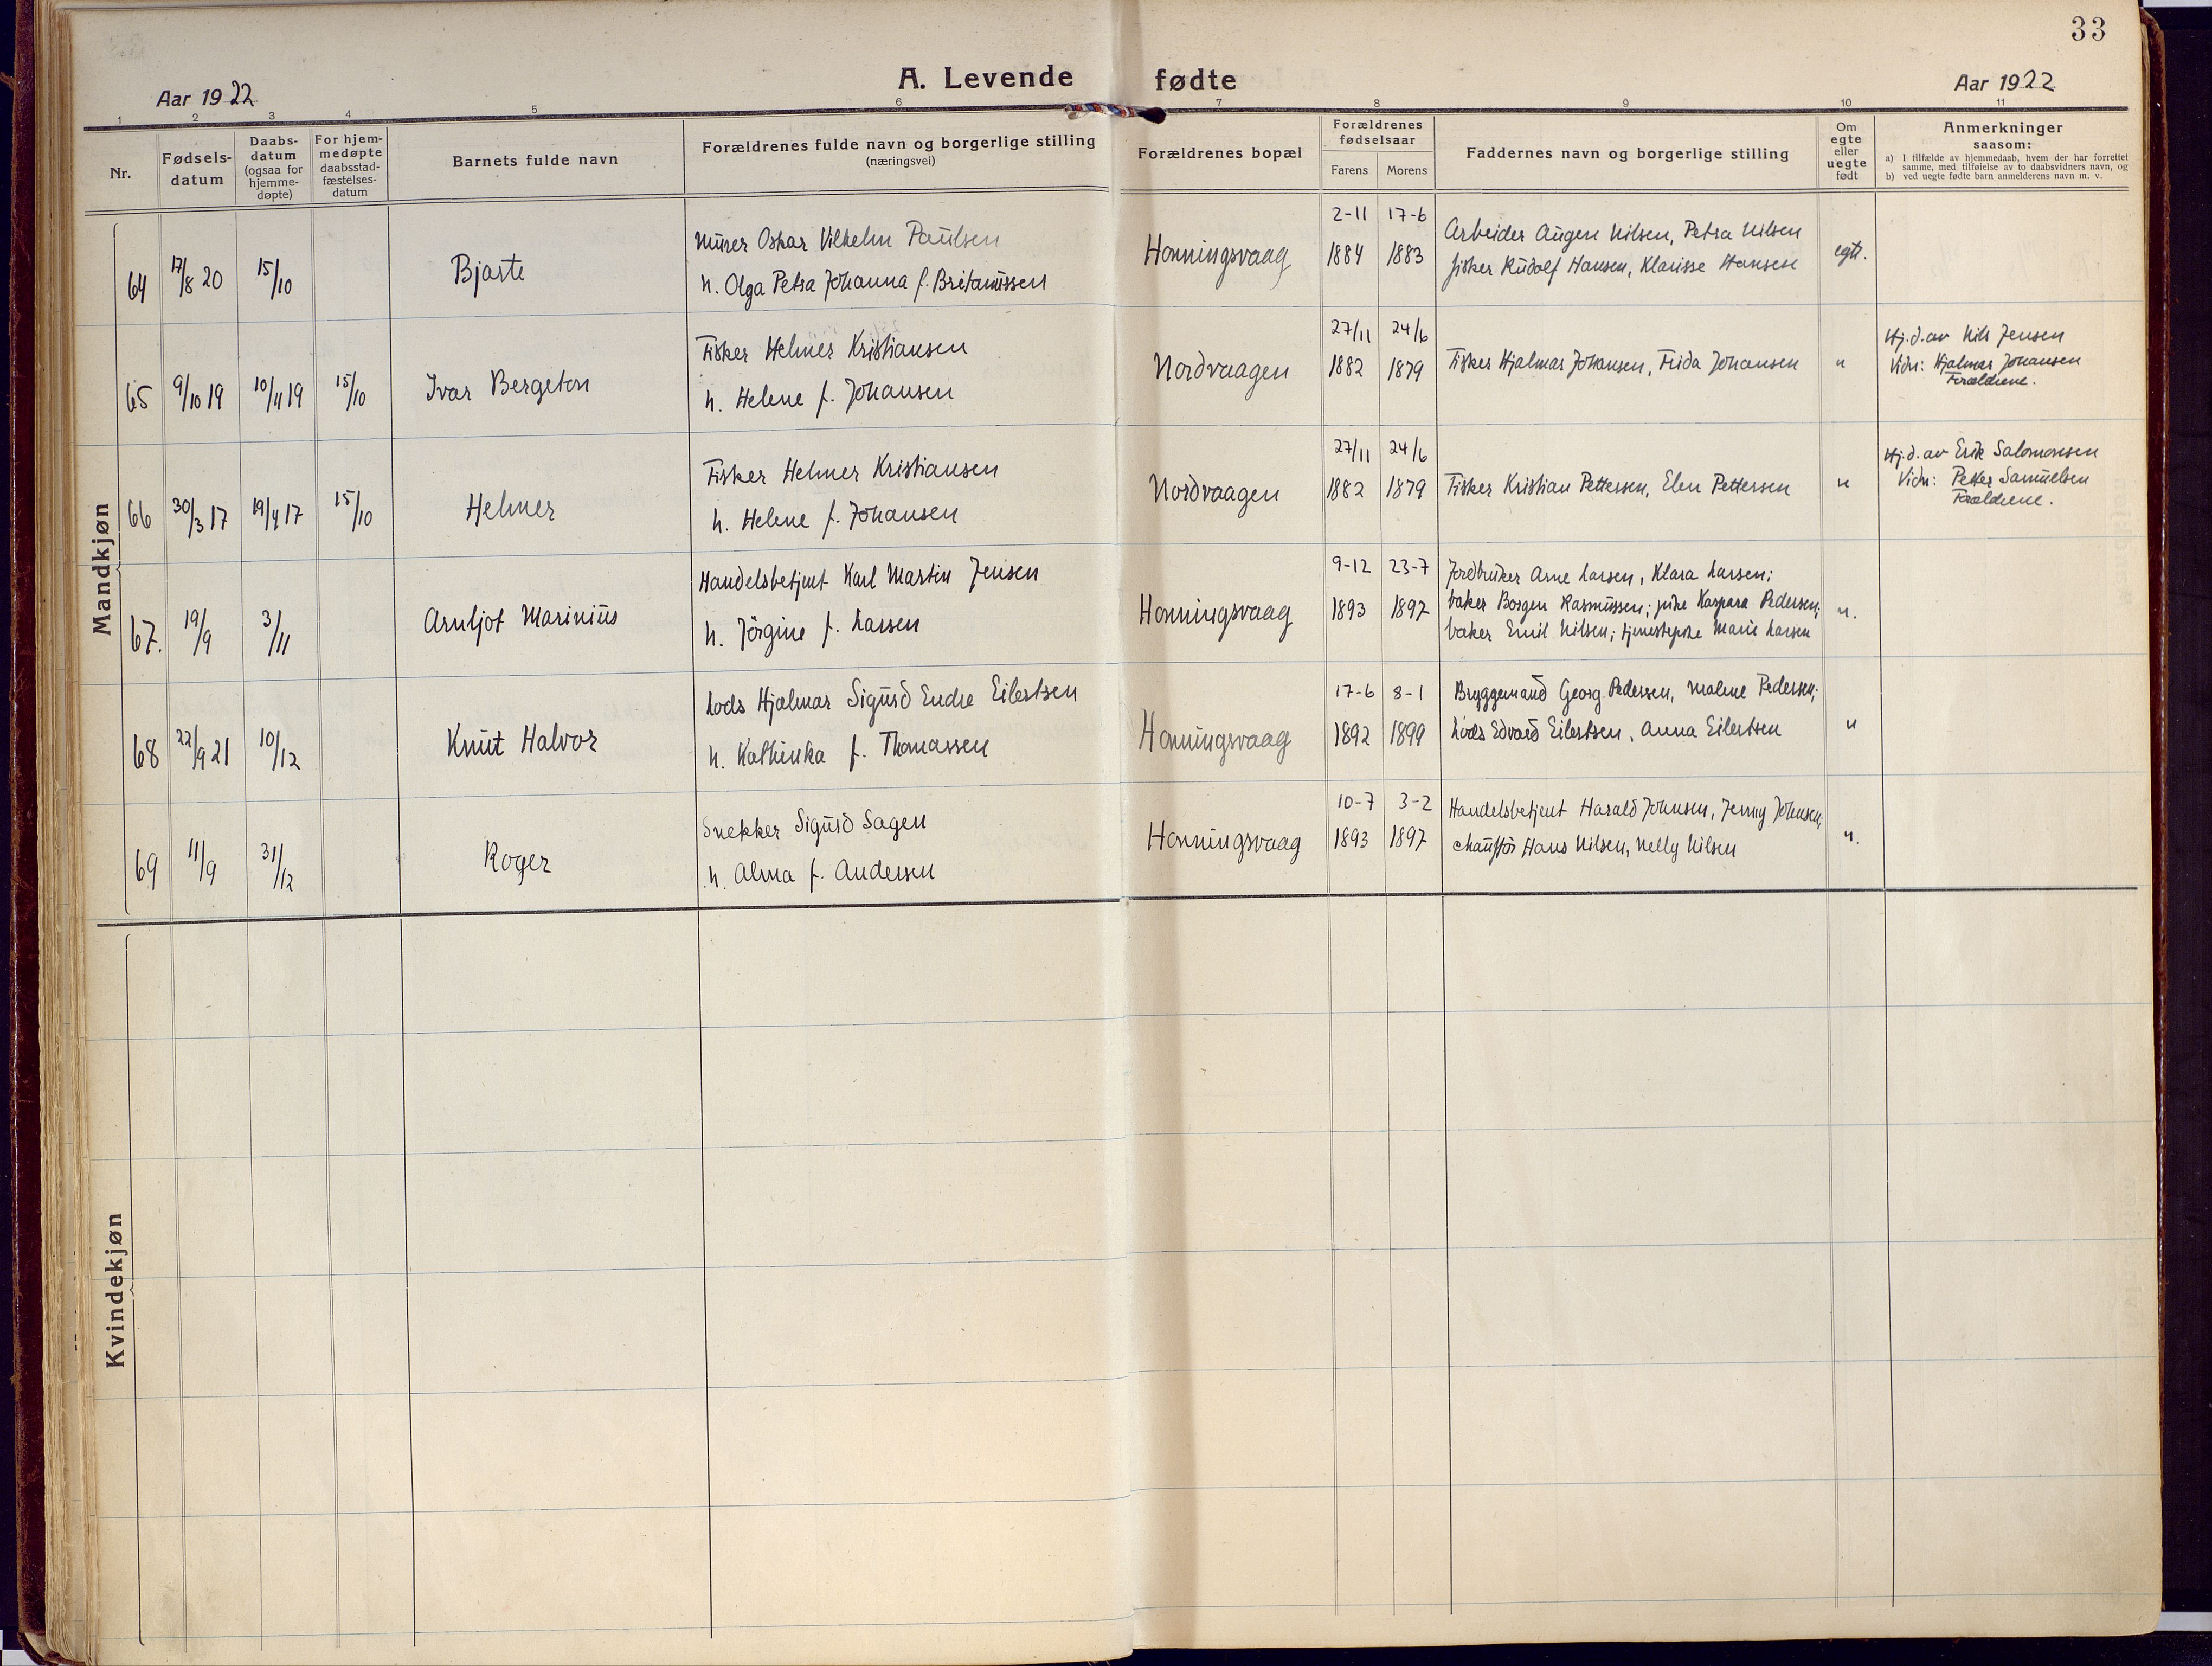 33
Aar 1922
A. Levende fødte
Aar 1922
1 2 3 4 5 6 7 8 9 10 11
Nr.
Fødsels-
datum
Daabs-
datum
(ogsaa for
hjemme-
døpte)
For hjem-
medøpte
daabsstad-
fæstelses-
datum
Barnets fulde navn
Forældrenes fulde navn og borgerlige stilling
(næringsvei)
Forældrenes bopæl
Forældrenes
fødselsaar
Farens Morens
Faddernes navn og borgerlige stilling
Om
egte
eller
uegte
født
Anmerkninger
saasom:
a) I tilfælde av hjemmedaab, hvem der har forrettet
samme, med tilføielse av to daabsvidners navn, og
b) ved uegte fødte barn anmelderens navn m. v.
Mandkjøn
64 17/8 20 15/10 Bjarte
Murer Oskar Vilhelm Paulsen
h. Olga Petra Johanna f.
Honningsvaag
2-11 17-6
1884 1883
Arbeider Augen Nilsen, Petra Nilsen
fisker Rudolf Hansen, Klarisse Hansen
egte.
65 9/10 19 10/4 19 15/10 Ivar Bergeton
Fisker Helmer Kristiansen
h. Helene f. Johansen
Nordvaagen
27/11 24/6
1882 1879
Fisker Hjalmar Johansen, Frida Johansen
"
Hj.d. av Nils Jensen
Vidn: Hjalmar Johansen
Forældrene.
66 30/3 17 19/4 17 15/10 Helmer
Fisker Helmer Kristiansen
h. Helene f. Johansen
Nordvaagen
27/11 24/6
1882 1879
Fisker Kristian Pettersen, Elen Pettersen
"
Hj.d. av Erik Salomonsen
Vidn: Petter Samuelsen
Forældrene.
67. 19/9 3/11 Arnljot Marinius
Handelsbetjent Karl Martin Jensen
h. Jörgine f. Larsen
Honningsvaag
9-12 23-7
1893 1897
Jordbruker Arne Larsen, Klara Larsen;
baker Borgen Rasmussen; pike Kaspara Pedersen;
baker Emil Nilsen; tjenestepike Marie Larsen
".
68 22/9 21 10/12 Knut Halvor
Lods Hjalmar Sigurd Endre Eilertsen
h. Kathinka f. Thomassen
Honningsvaag
17-6 8-1
1892 1899
Bryggemand Georg Pedersen, Malene Pedersen;
Lods Edvard Eilertsen, Anna Eilertsen
"
69 11/9 31/12 Roger
Snekker Sigurd Sagen
h. Alma f. Andersen
Honningsvaag
10-7 3-2
1893 1897
Handelsbetjent Harald Johnsen, Jenny Johnsen;
chauffør Hans Nilsen, Nelly Nilsen
".
Kvindekjøn